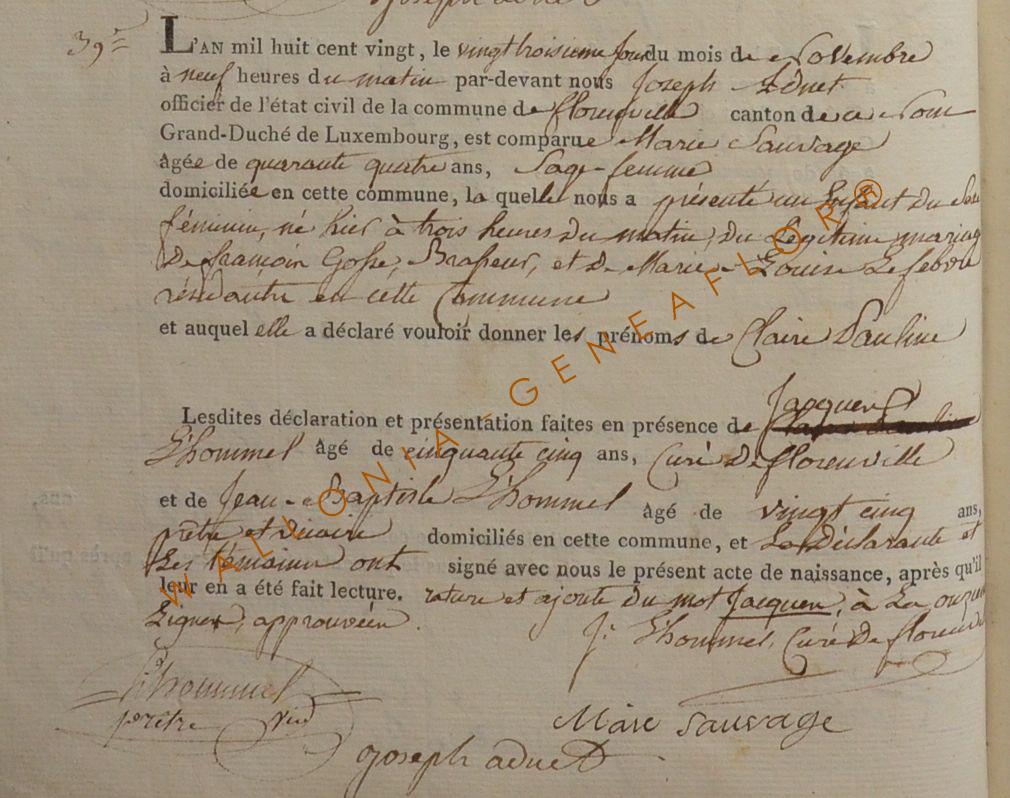 joseph adnet
39e
L'AN mil huit cent vingt, le vingt troisieme jour du mois de Novembre
à neuf heures du matin par-devant nous Joseph Adnet
officier de l'état civil de la commune de florenville canton de ce Nom
Grand-Duché de Luxembourg, est comparue Marie Sauvage
âgée de quarante quatre ans, Sage-femme
domiciliée en cette commune, la quelle nous a présenté un Enfant du Sexe
féminin, né hier à trois heures du matin, du Légitime mariage
De françois Gosse, Brasseur, et de Marie-Louise Lefebvre
résidante en cette Commune
et auquel elle a déclaré vouloir donner les prénoms de Claire Pauline
Lesdites déclaration et présentation faites en présence de Jacques
L'hommel âgé de cinquante cinq ans, Curé De florenville
et de Jean-Baptiste L'hommel âgé de vingt cinq ans,
prêtre et vicaire domiciliés en cette commune, et La déclarante et
Les témoins ont signé avec nous le présent acte de naissance, après qu'il
leur en a été fait lecture. rature et ajoute du mot Jacques, à La onzieme
Ligne, approuvées.
J: L'hommel, Curé De florenville
L'hommel
prêtre vic
Marie Sauvage
joseph adnet
WALLONIA-GENEAFLOR®